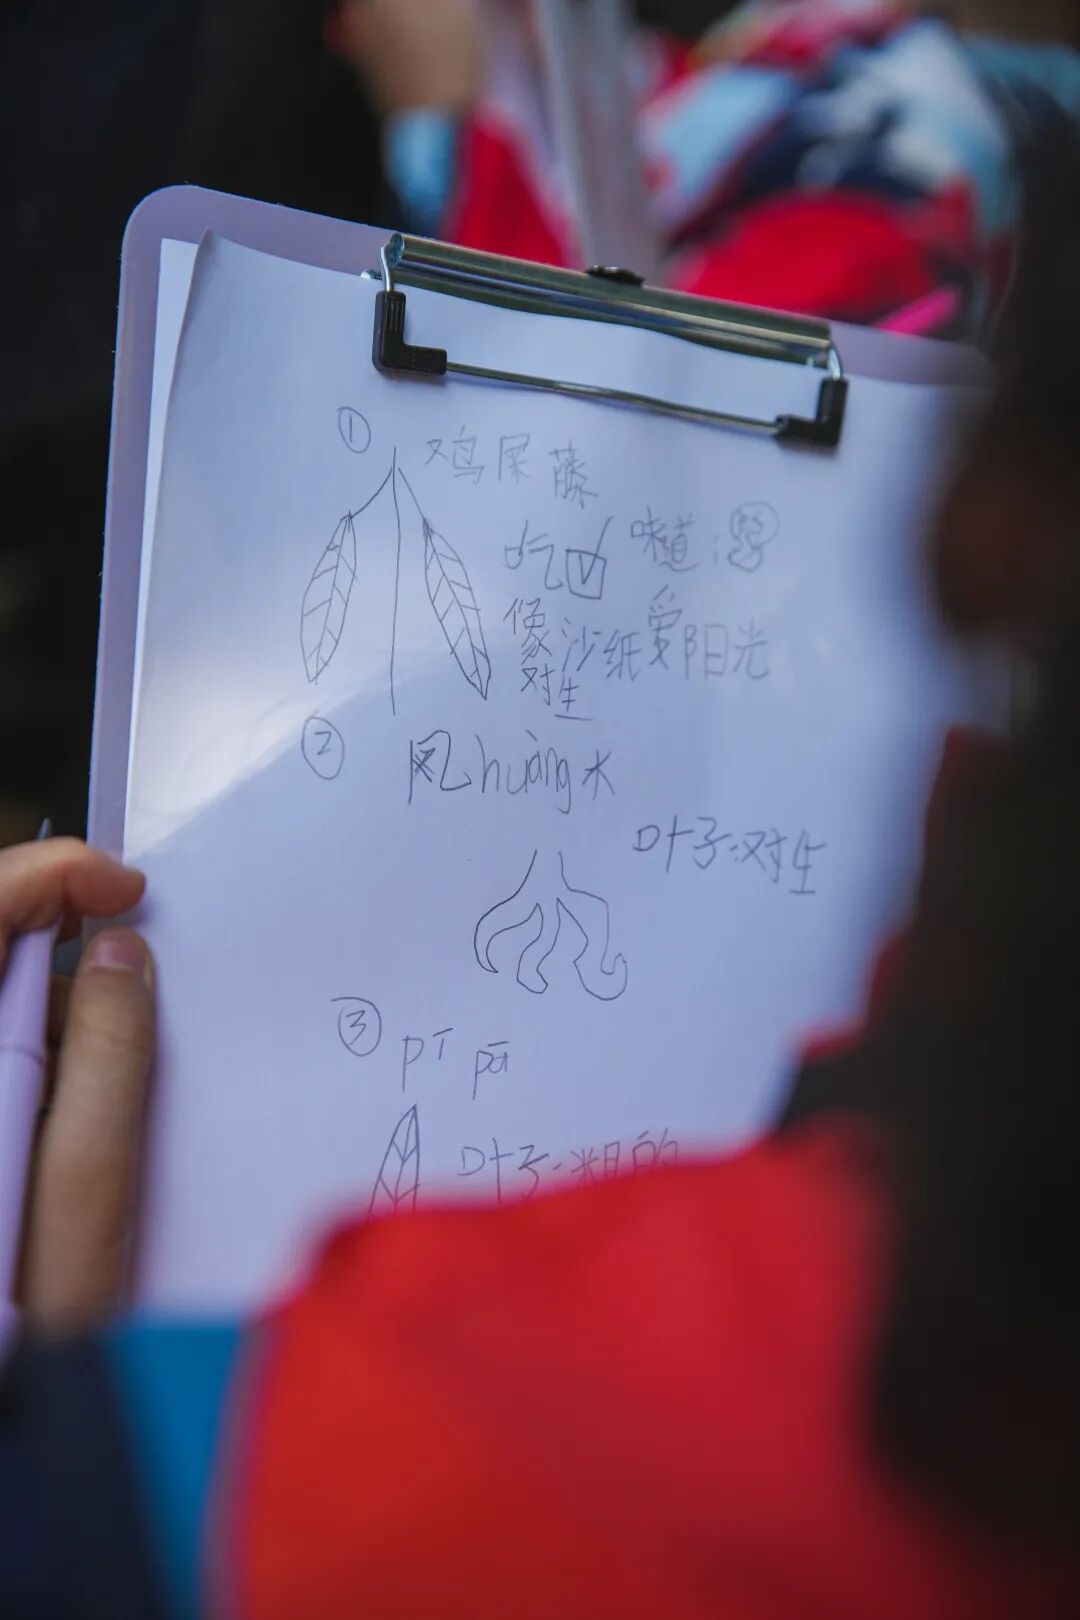 ① 鸡屎藤
吃☑ 味道:
像沙纸 爱阳光
对生
② 凤huàng木
叶子:对生
③ pī pā
叶子:粗的